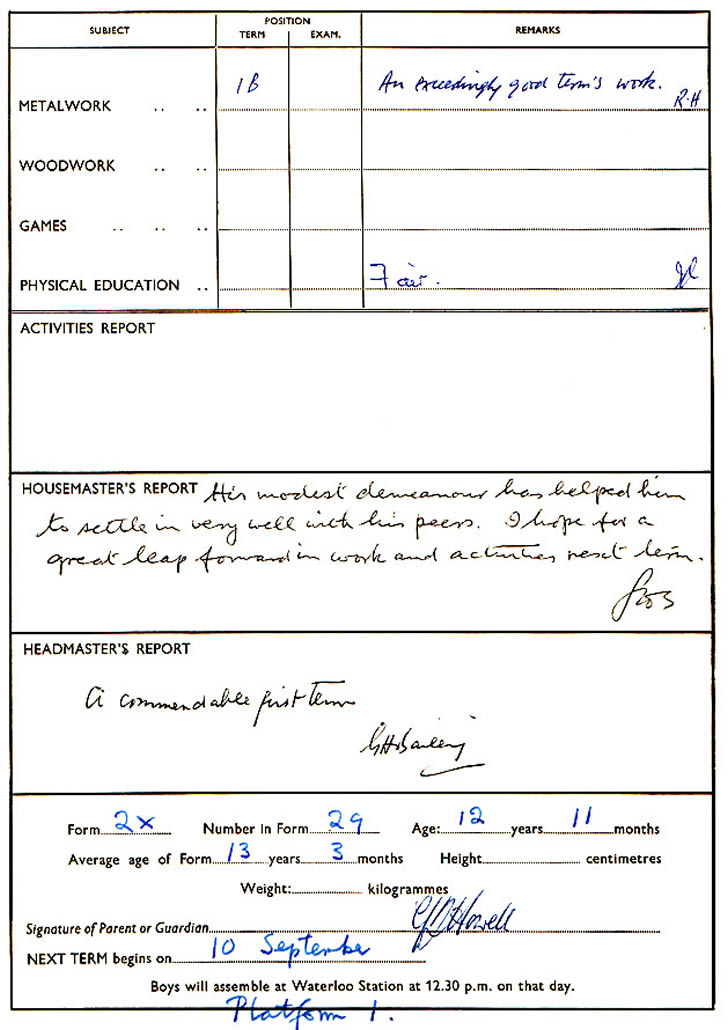 SUBJECT POSITION REMARKS
TERM EXAM.
METALWORK .. .. 1B An exceedingly good term's work. R.H
WOODWORK .. ..
GAMES .. .. ..
PHYSICAL EDUCATION .. Fair.
ACTIVITIES REPORT
HOUSEMASTER'S REPORT His modest demeanour has helped him
to settle in very well with his peers. I hope for a
great leap forward in work and activities next term.
HEADMASTER'S REPORT
A commendable first term
Form 2X Number in Form 29 Age: 12 years 11 months
Average age of Form 13 years 3 months Height: centimetres
Weight: kilogrammes
Signature of Parent or Guardian Howell
NEXT TERM begins on 10 September
Boys will assemble at Waterloo Station at 12.30 p.m. on that day.
Platform 1.